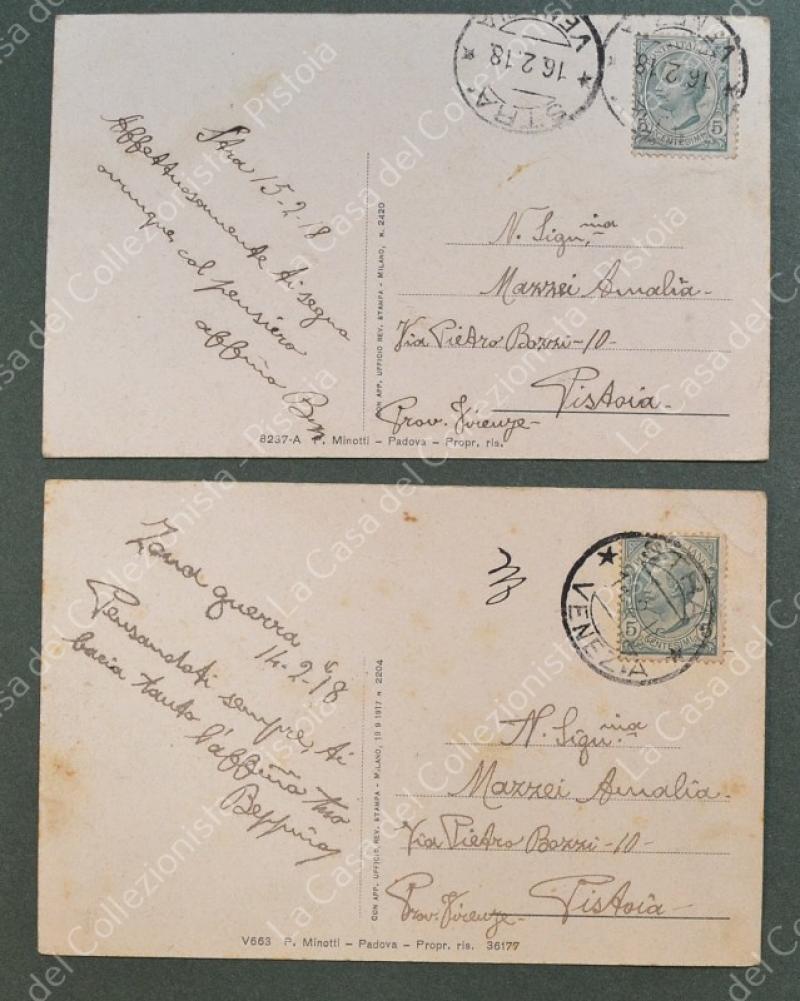 STRA
16.2.18
VENEZIA
16.2.18
VENEZIA
CENTESIMI 5
Stra 15-2-18
Affettuosamente ti segna
ovunque, col pensiero
affḿo Bep
N. Sigń.ina
Mazzei Amalia-
Via Pietro Bozzi-10-
Pistoia-
Prov. Firenze-
CON APP. UFFICIO REV. STAMPA - MILANO, N. 2420
8237-A P. Minotti - Padova - Propr. ris.
Zona guerra
14-2-18
Pensandoti sempre, ti
bacia tanto l'affḿo tuo
Beppino
STRA
VENEZIA
5 CENTESIMI
N. Sign.ina
Mazzei Amalia-
Via Pietro Bozzi-10-
Prov. Firenze-
Pistoia-
CON APP. UFFICIO, REV. STAMPA - MILANO, 19 9 1917 N 2204
V663 P. Minotti - Padova - Propr. ris. 36177
La Casa del Collezionista - Pistoia